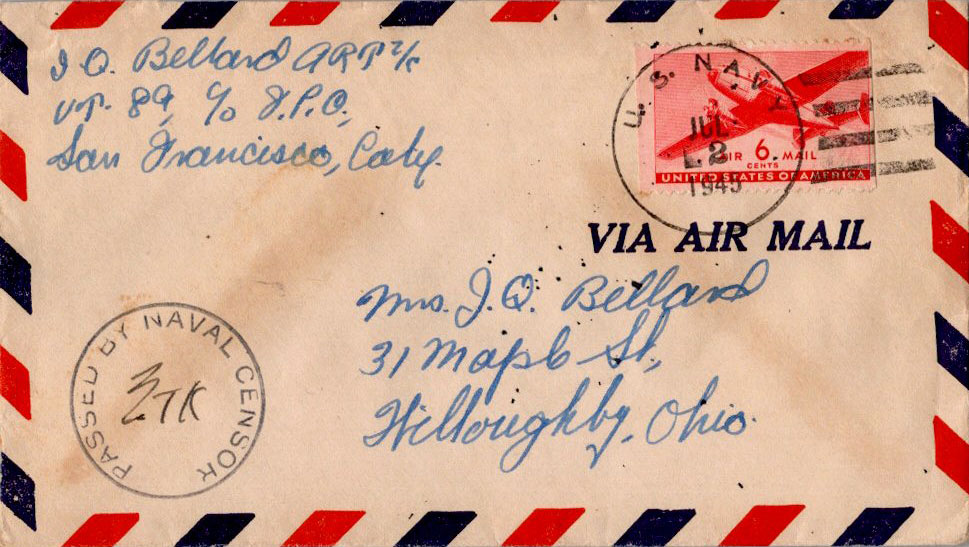 J. Q. Bellard ART 2/c
VT. 89, c/o F.P.O.,
San Francisco, Caly.
U. S. NAVY
JUL
2
1945
AIR 6 MAIL
CENTS
UNITED STATES OF AMERICA
VIA AIR MAIL
Mrs. J. Q. Bellard
31 Maple St,
Willoughby, Ohio.
PASSED BY NAVAL CENSOR